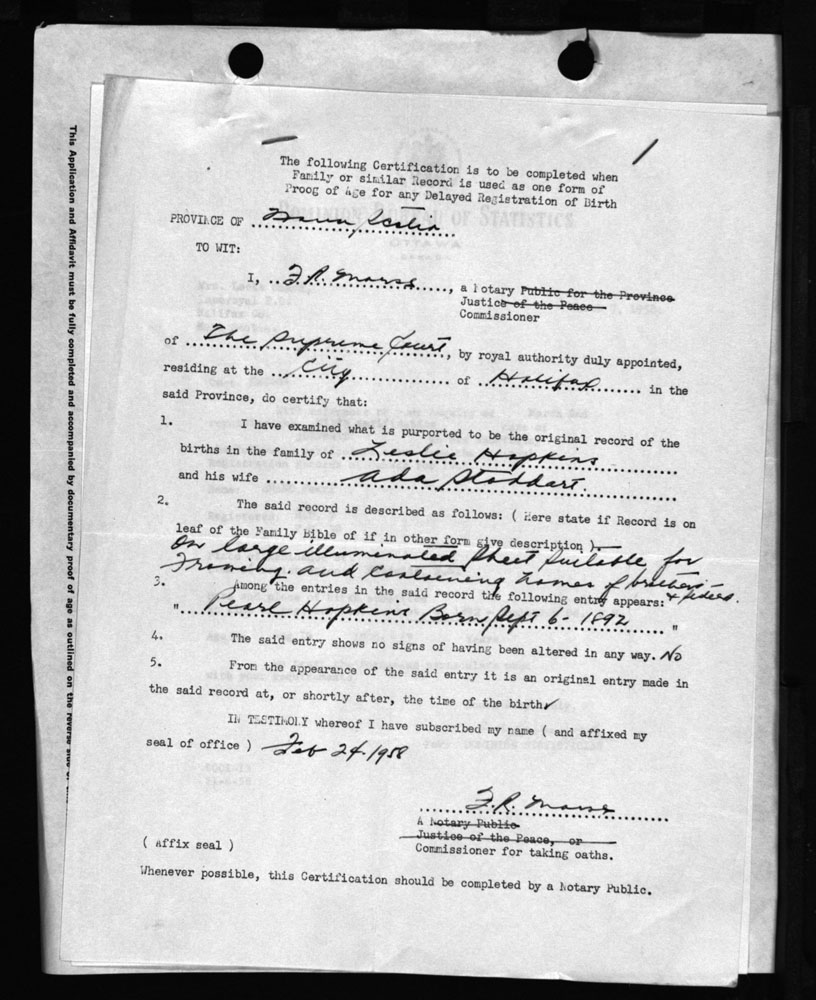 The following Certification is to be completed when
Family or similar Record is used as one form of
Proog of Age for any Delayed Registration of Birth
PROVINCE OF Nova Scotia
TO WIT:
I, F.R. Morse, a Notary Public for the Province
Justice of the Peace
Commissioner
of The Supreme Court, by royal authority duly appointed,
residing at the City of Halifax in the
said Province, do certify that:
1. I have examined what is purported to be the original record of the
births in the family of Leslie Hopkins
and his wife Ada Stoddart.
2. The said record is described as follows: ( Here state if Record is on
leaf of the Family Bible of if in other form give description ).
On large illuminated sheet suitable for
Framing. and containing names of brothers
& sisters.
3. Among the entries in the said record the following entry appears:
" Pearl Hopkins Born Sept 6 - 1892 "
4. The said entry shows no signs of having been altered in any way. No
5. From the appearance of the said entry it is an original entry made in
the said record at, or shortly after, the time of the birth
IN TESTIMONY whereof I have subscribed my name ( and affixed my
seal of office ) Feb 24-1958
F.R. Morse
A Notary Public
Justice of the Peace, or
Commissioner for taking oaths.
( Affix seal )
Whenever possible, this Certification should be completed by a Notary Public.
This Application and Affidavit must be fully completed and accompanied by documentary proof of age as outlined on the reverse side of
DOMINION BUREAU OF STATISTICS
OTTAWA
CANADA